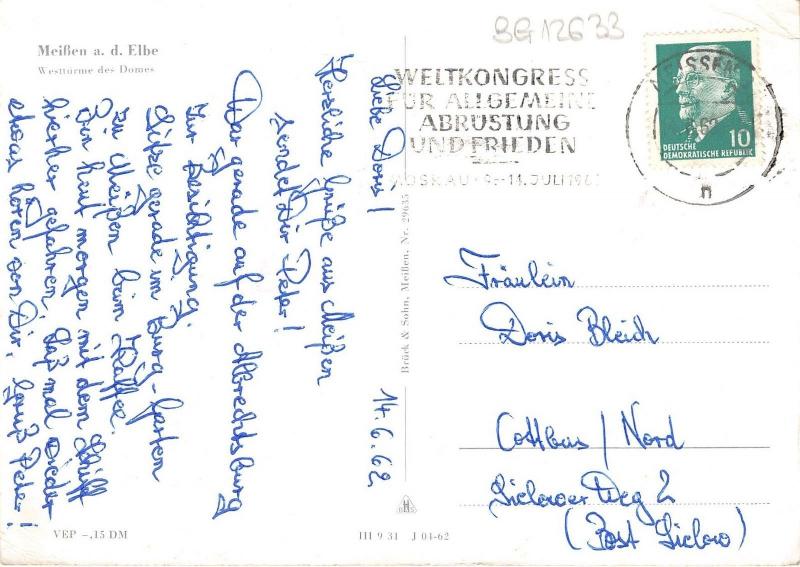 SG12633
Meißen a. d. Elbe
Westtürme des Domes
WELTKONGRESS
FÜR ALLGEMEINE
ABRÜSTUNG
UND FRIEDEN
MOSKAU 9.-14. JULI 196
MEISSEN
2
n
10
DEUTSCHE
DEMOKRATISCHE REPUBLIK
14.6.62
Liebe Doris!
Herzliche Grüße aus Meißen
sendet Dir Peter!
War gerade auf der Albrechtsburg
zur Besichtigung.
Sitze gerade im Burg-Garten
zu Meißen beim Kaffee.
Bin heut morgen mit dem Schiff
hierher gefahren. Laß mal wieder
etwas hören von Dir, Gruß Peter!
Brück & Sohn, Meißen, Nr. 29635
Fräulein
Doris Bleich
Cottbus / Nord
Sielower Weg 2
(Post Sielow)
VEP -,15 DM
III 9 31 J 04-62